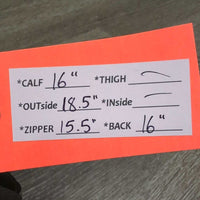 *CALF 16" *THIGH —
*OUTside 18.5" *INside —
*ZIPPER 15.5" *BACK 16"